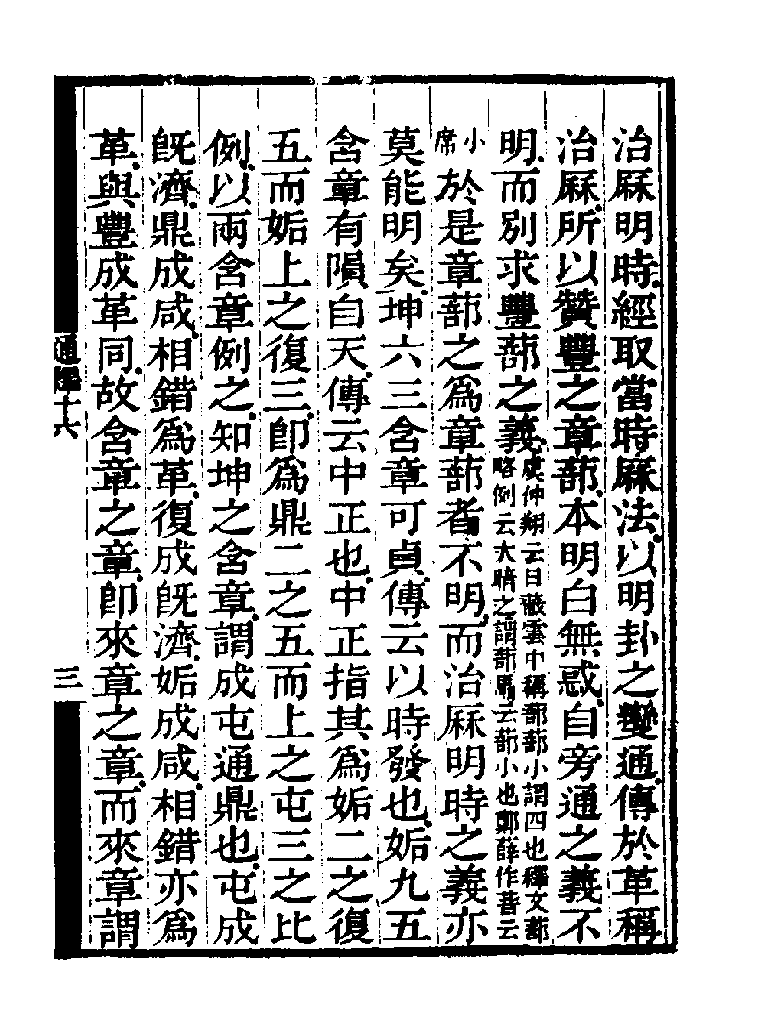 治厤明時經取當時厤法以明卦之變通傳於革稱
治厤所以贊豐之章蔀本明白無惑自旁通之義不
明而別求豐蔀之義虞仲翔云日蔽雲中稱蔀蔀小謂四也釋文蔀
略例云大暗之謂蔀馬云蔀小也鄭薛作菩云
小席於是章蔀之爲章蔀者不明而治厤明時之義亦
莫能明矣坤六三含章可貞傳云以時發也姤九五
含章有隕自天傳云中正也中正指其爲姤二之復
五而姤上之復三卽爲鼎二之五而上之屯三之比
例以兩含章例之知坤之含章謂成屯通鼎也屯成
旣濟鼎成咸相錯爲革復成旣濟姤成咸相錯亦爲
革與豐成革同故含章之章卽來章之章而來章謂
通釋十六
三